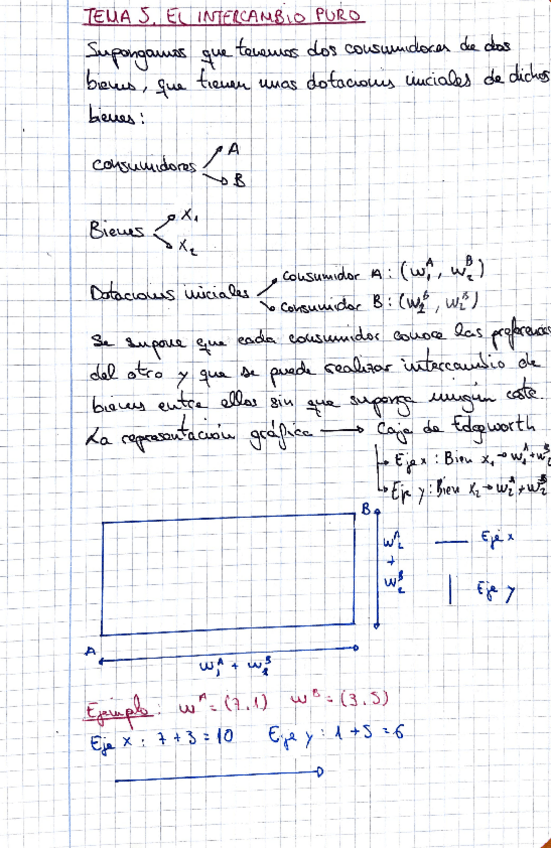 TEMA 5. EL INTERCAMBIO PURO
Supongamos que tenemos dos consumidores de dos
bienes, que tienen unas dotaciones iniciales de dichos
bienes:
Consumidores A
B
Bienes X₁
X₂
Dotaciones iniciales Consumidor A: (w₁ᴬ, w₂ᴮ)
Consumidor B: (w₁ᴮ, w₂ᴮ)
Se supone que cada consumidor conoce las preferencias
del otro y que se puede realizar intercambio de
bienes entre ellos sin que suponga ningún coste.
La representación gráfica → Caja de Edgeworth
Eje x: Bien X₁ → w₁ᴬ + w₂ᴮ
Eje y: Bien X₂ → w₂ᴬ + w₂ᴮ
B
w₂ᴬ
+
w₂ᴮ
Eje x
Eje y
A
w₁ᴬ + w₁ᴮ
Ejemplo: wᴬ = (7,1) wᴮ = (3,5)
Eje x: 7+3=10 Eje y: 1+5=6